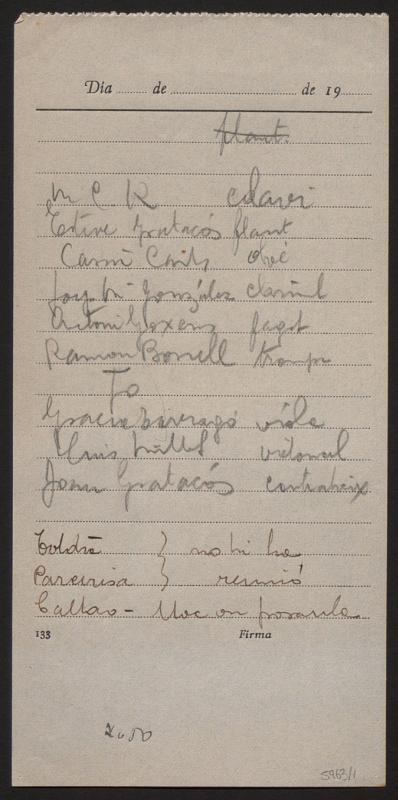 Dia ........ de ........................ de 19 ......
flaut.
M C R claví
Esteve Gratacós flaut
Carré oboè
Josep Mª Gonzálex clarinet
Antoni Goxens fagot
Ramon Bonell trompa
To
Gracià Tarragó viola
Lluis Millet violoncel
Joan Gratacós contrabaix
Toldrà } no hi ha
Parcerisa } reunió
Callao - lloc on posar-la
133 Firma
5963/1